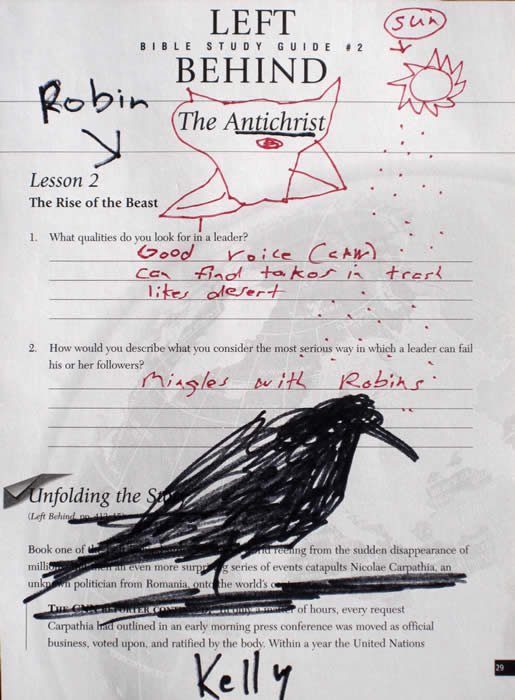 LEFT
BIBLE STUDY GUIDE #2
BEHIND
sun
Robin
The Antichrist
Lesson 2
The Rise of the Beast
1. What qualities do you look for in a leader?
Good voice (CAW)
can find takos in trash
likes desert
2. How would you describe what you consider the most serious way in which a leader can fail
his or her followers?
Mingles with Robins
Unfolding the
(Left Behind, pp.
Book one of the reeling from the sudden disappearance of
an even more series of events catapults Nicolae Carpathia, an
unknown politician from Romania, onto the world's
THE CNN REPORTER of hours, every request
Carpathia had outlined in an early morning press conference was moved as official
business, voted upon, and ratified by the body. Within a year the United Nations
Kelly
29